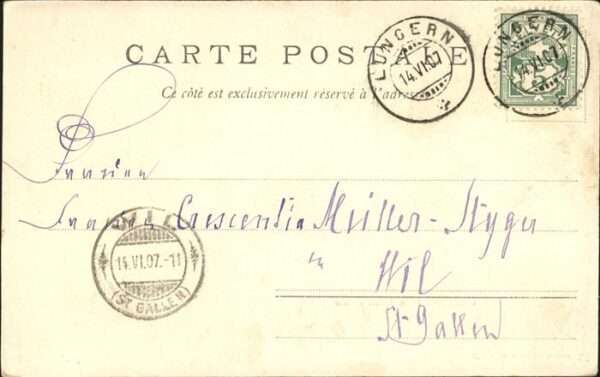 CARTE POSTALE
LUNGERN
14.VI.07
LUNGERN
14.VI.07
Ce côté est exclusivement réservé à l'adresse
Crescentia Müller-Styger
in
Wil
St Gallen
WIL
14.VI.07.-11
(ST GALLEN)